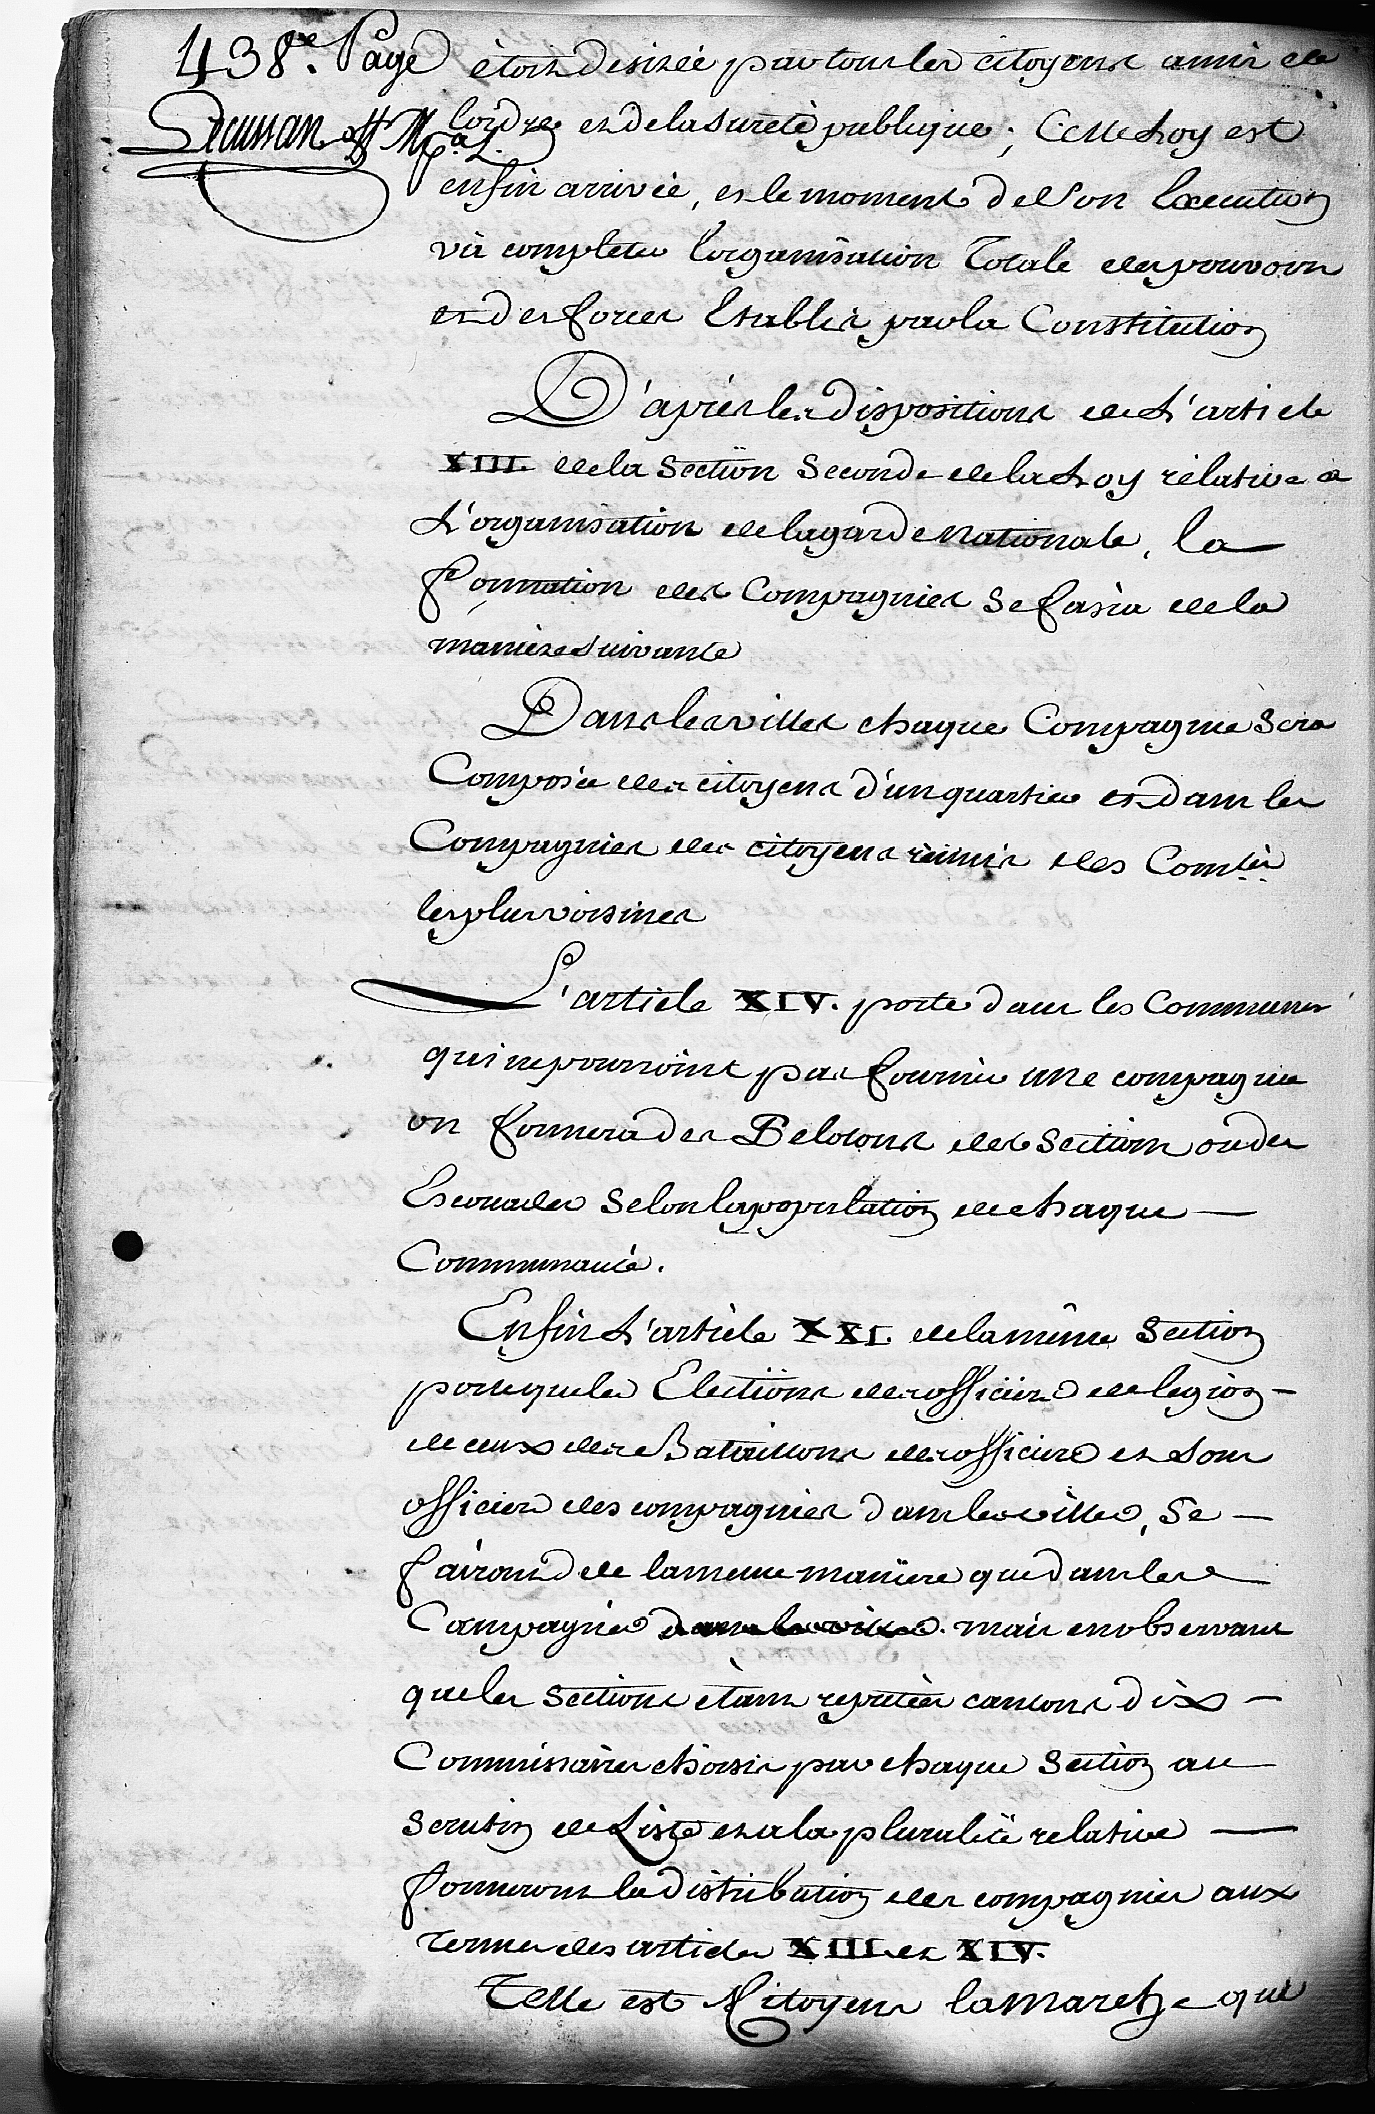 438.e Page
Lecussan off Mpal.
étoit desirée par tous les citoyens amis de
lordre et de la sureté publique; Cette Loy est
enfin arrivée, et le moment de son Execution
và completer l'organisation Totale des pouvoirs
et des forces Etablis par la Constitution
D'après les dispositions de L'article
XIII. de la Section Seconde de la Loy rélative a
L'organisation de la garde nationale, la
formation des Compagnies se faira de la
maniere suivante
Dans les villes chaque Compagnie sera
Composée des citoyens d'un quartier et dans les
Compagnies des citoyens réunis des Comtés
les plus voisines
L'article XIV. porte dans les Communes
qui ne pourroint pas fournir une compagnie
on formera des Pelotons des Sections ou des
Escouades selon la population de chaque
Communauté.
Enfin L'article XXI. de la même Section
porte que les Elections des officiers de legion
de ceux des Bataillons des officiers et sous
officiers des compagnies dans les villes, se
fairont de la meme maniere que dans les
Campagnes dans les villes. mais en observant
que les sections étant reputées cantons dix
Commissaires choisis par chaque section au
scrutin de Liste et a la pluralité relative
formeront la distribution des compagnies aux
termes des articles XIII et XIV.
Telle est Citoyens la marche que